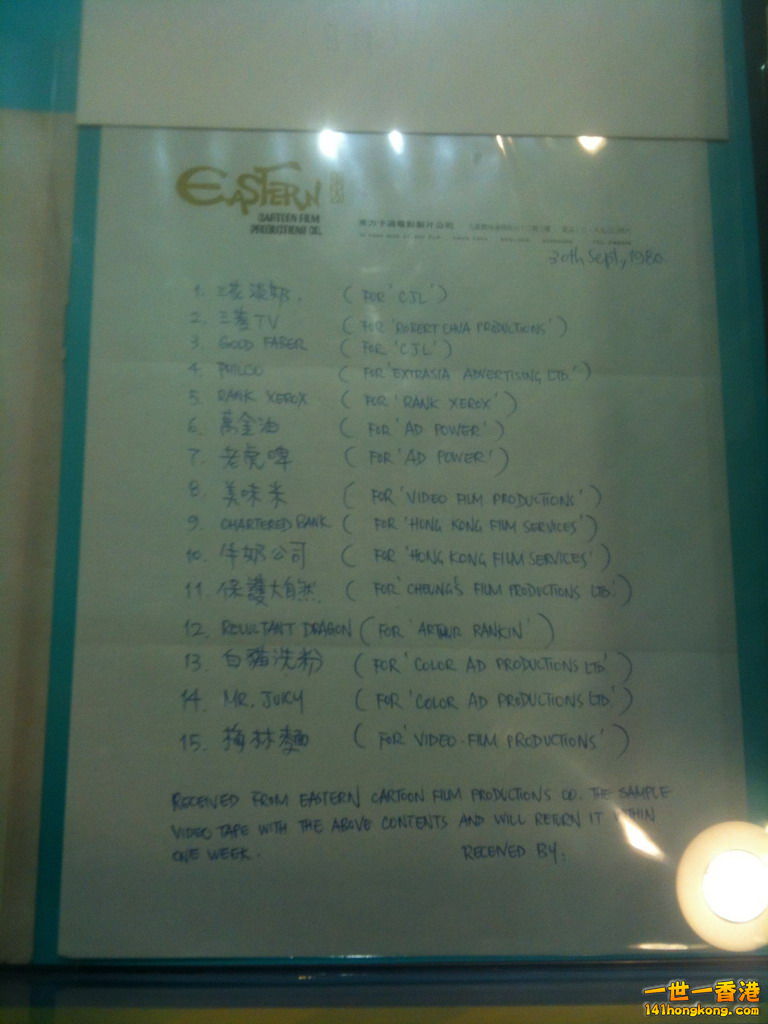 EASTERN
CARTOON FILM
PRODUCTIONS CO.
東方卡通電影製片公司
30th Sept, 1980
1. 三花淡奶. (FOR 'CJL')
2. 三菱TV (FOR 'ROBERT CHUA PRODUCTIONS')
3. GOOD FABER (FOR 'CJL')
4. PHILCO (FOR 'EXTRASIA ADVERTISING LTD.')
5. RANK XEROX (FOR 'RANK XEROX')
6. 萬金油 (FOR 'AD POWER')
7. 老虎啤 (FOR 'AD POWER')
8. 美味米 (FOR 'VIDEO FILM PRODUCTIONS')
9. CHARTERED BANK (FOR 'HONG KONG FILM SERVICES')
10. 牛奶公司 (FOR 'HONG KONG FILM SERVICES')
11. 保護大自然 (FOR 'CHEUNG'S FILM PRODUCTIONS LTD.')
12. RELUCTANT DRAGON (FOR 'ARTHUR RANKIN')
13. 白貓洗粉 (FOR 'COLOR AD PRODUCTIONS LTD')
14. MR. JUICY (FOR 'COLOR AD PRODUCTIONS LTD.')
15. 梅林麵 (FOR 'VIDEO-FILM PRODUCTIONS')
RECEIVED FROM EASTERN CARTOON FILM PRODUCTIONS CO. THE SAMPLE
VIDEO TAPE WITH THE ABOVE CONTENTS AND WILL RETURN IT WITHIN
ONE WEEK. RECEIVED BY:
一世一香港
141hongkong.com